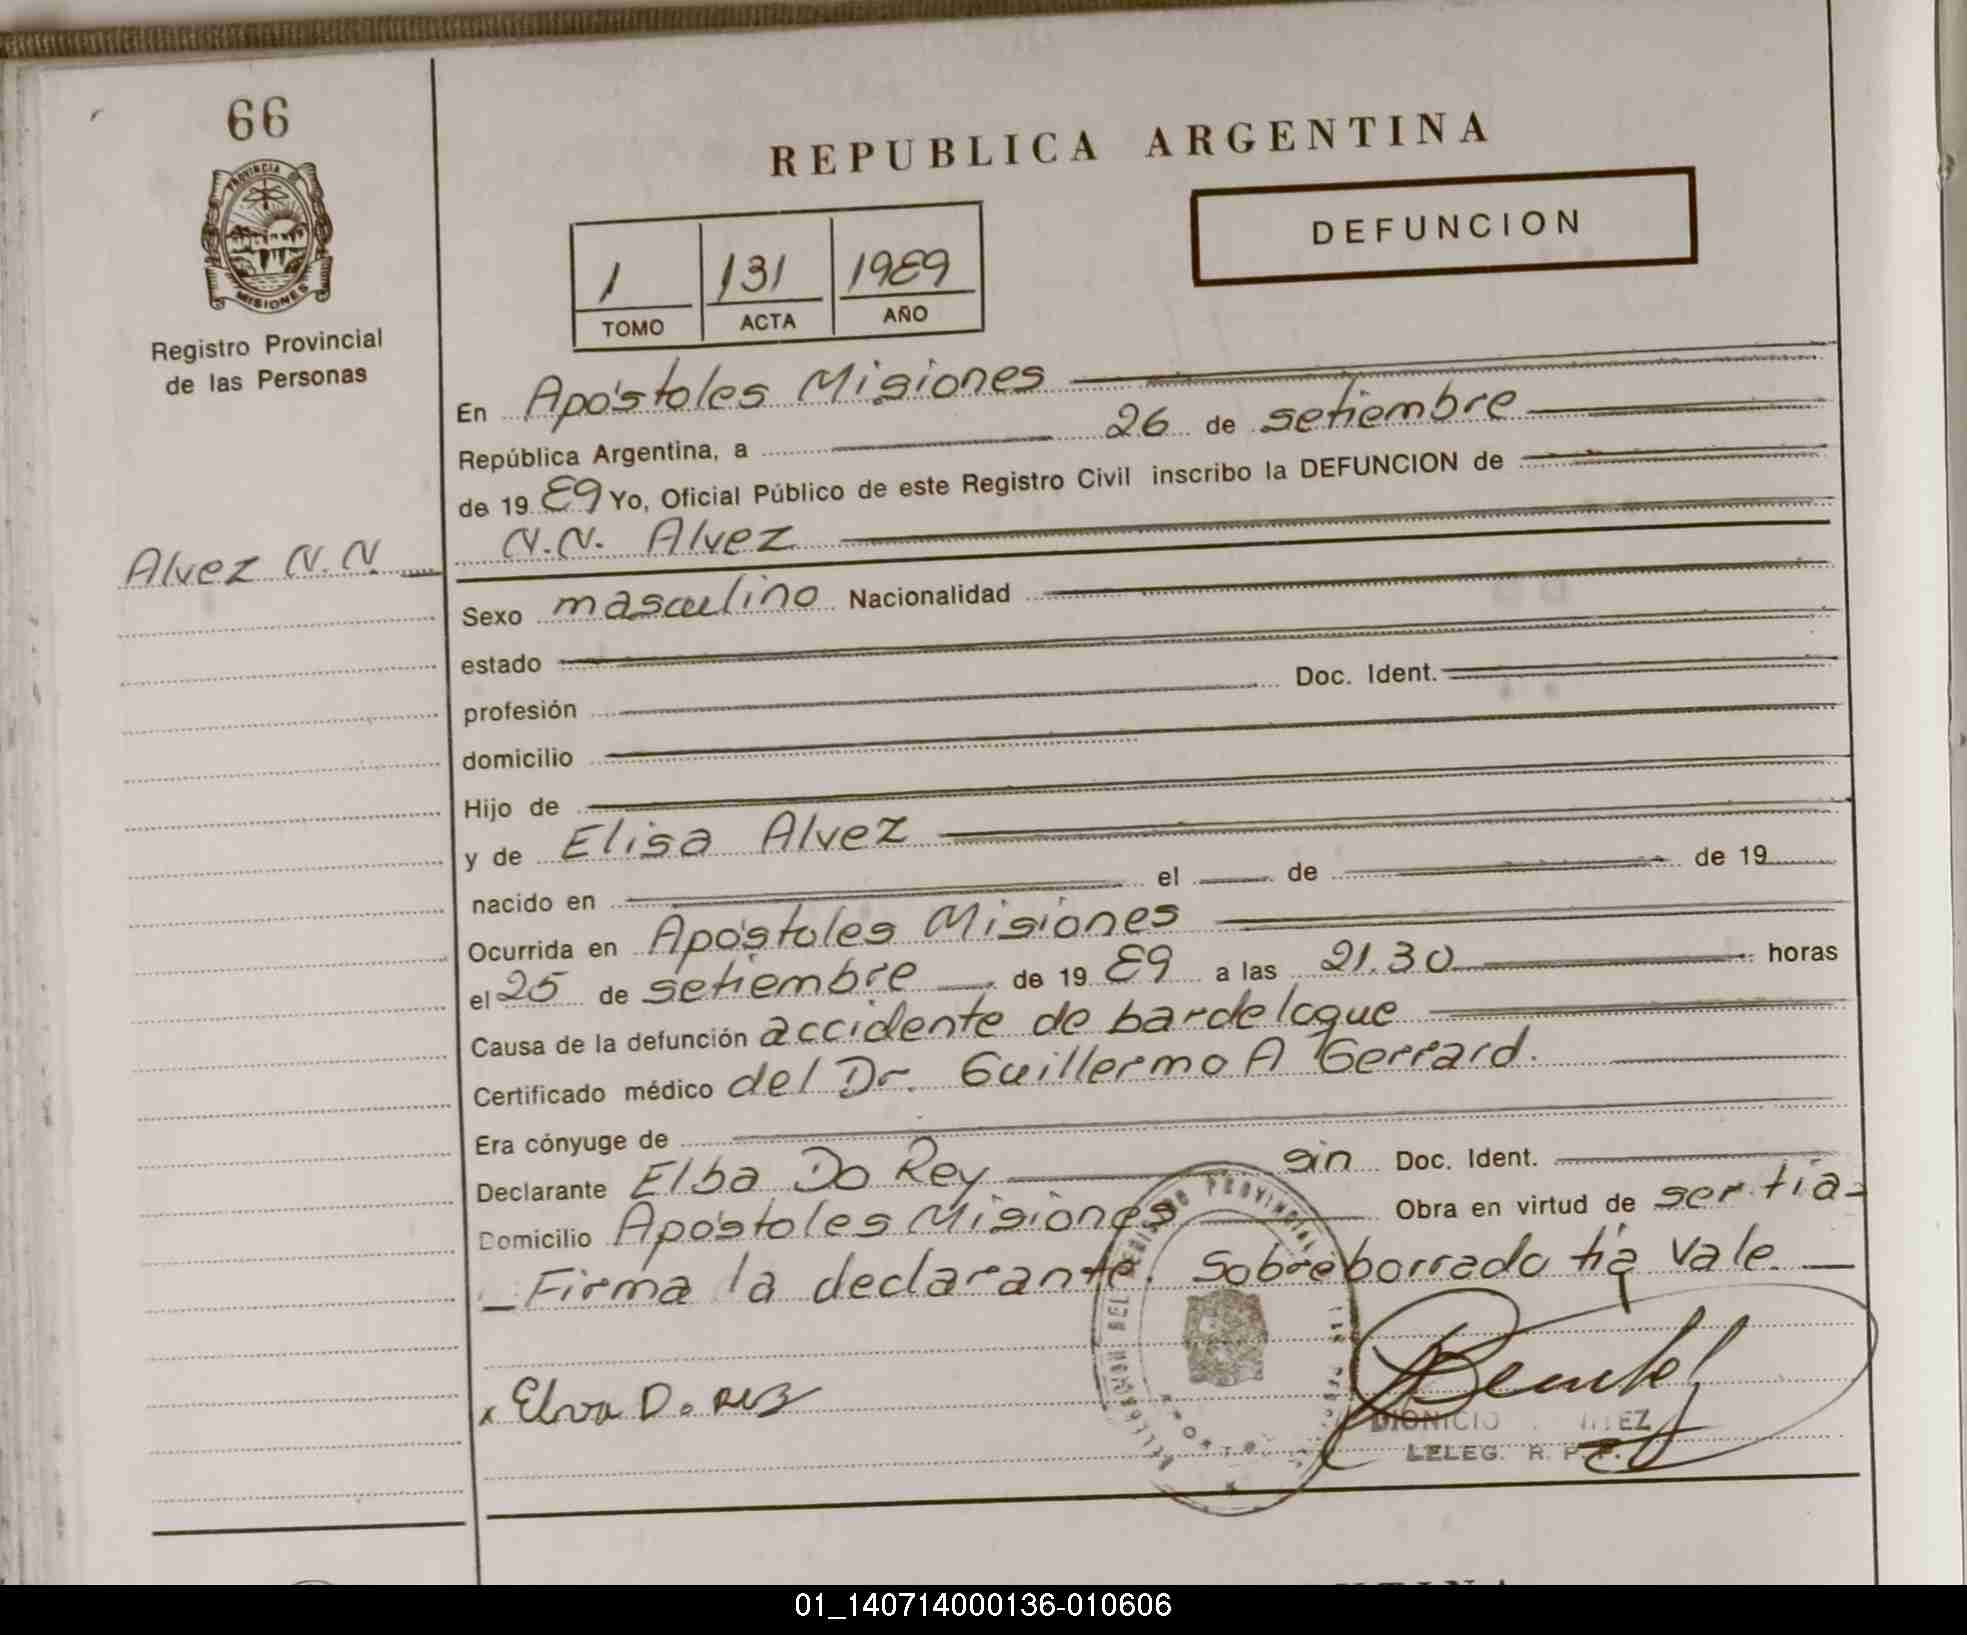 66
PROVINCIA DE
MISIONES
Registro Provincial
de las Personas
REPUBLICA ARGENTINA
DEFUNCION
1 131 1989
TOMO ACTA AÑO
En Apóstoles Misiones
República Argentina, a 26 de setiembre
de 19 89 Yo, Oficial Público de este Registro Civil inscribo la DEFUNCION de
Alvez N.N. N.N. Alvez
Sexo masculino Nacionalidad
estado
profesión Doc. Ident.
domicilio
Hijo de
y de Elisa Alvez
nacido en el de de 19
Ocurrida en Apóstoles Misiones
el 25 de setiembre de 19 89 a las 21.30 horas
Causa de la defunción accidente de
Certificado médico del Dr. Guillermo A Gerrard.
Era cónyuge de
Declarante Elba Do Rey sin Doc. Ident.
Domicilio Apóstoles Misiones Obra en virtud de ser tía
Firma la declarante. Sobreborrado tía vale.
x Elva D.
DIONICIO
R. P. P.
01_140714000136-010606